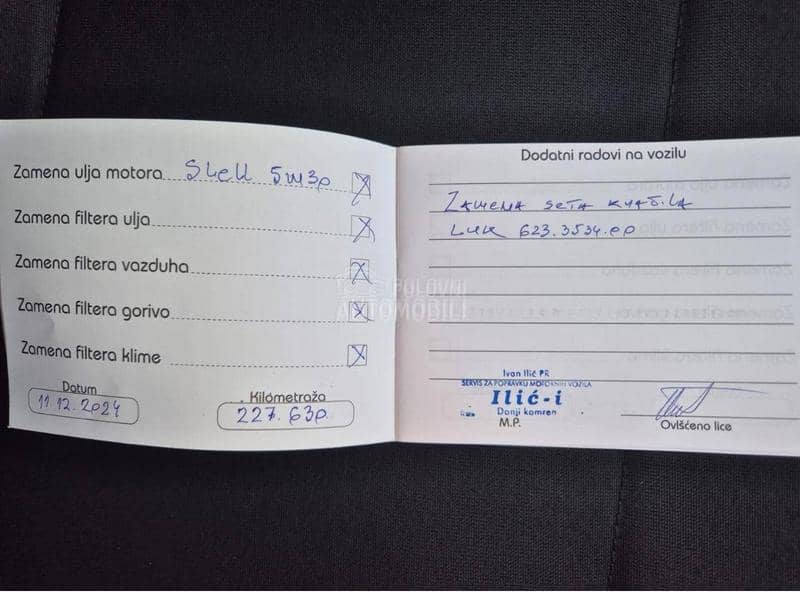 Zamena ulja motora Shell 5W30
Zamena filtera ulja
Zamena filtera vazduha
Zamena filtera gorivo
Zamena filtera klime
Datum
11.12.2024
Kilometraža
227.630
Dodatni radovi na vozilu
Zamena seta kvačila
LUK 623.3534.00
Ivan Ilić PR
SERVIS ZA POPRAVKU MOTORNIH VOZILA
Ilić-i
Donji komren
M.P.
Ovlšćeno lice
POLOVNI
AUTOMOBILI